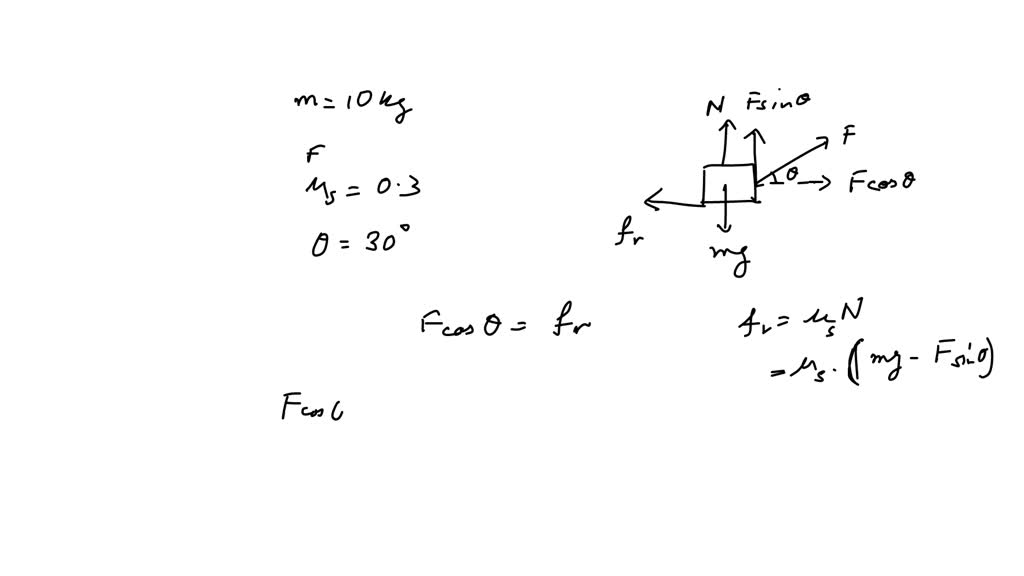 m = 10 kg
F
μs = 0.3
θ = 30°
N Fsinθ
F
θ
Fcosθ
fr
mg
Fcosθ = fr
fr = μsN
= μs. (mg - Fsinθ)
Fcos